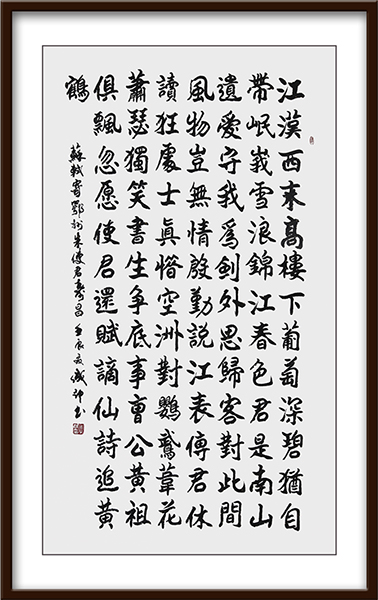 江漢西來高樓下葡萄深碧猶自
帶岷峩雪浪錦江春色君是南山
遺愛守我爲劍外思歸客對此間
風物豈無情殷勤說江表傳君休
讀狂處士眞惜空洲對鸚鵡葦花
蕭瑟獨笑書生争底事曺公黄祖
俱飄忽愿使君還賦謫仙詩追黄
鶴
蘇軾寄鄂州朱使君壽昌 壬辰